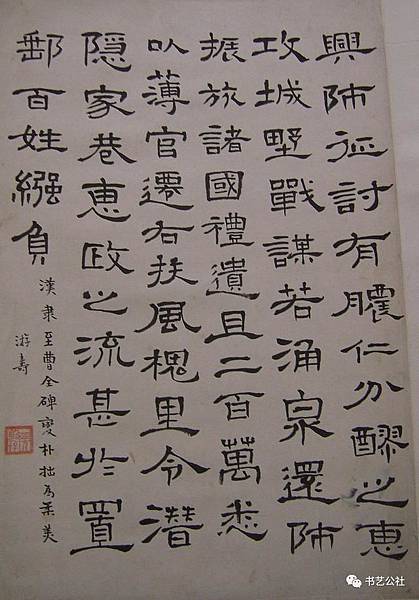 興師征討有膿仁分醪之惠
攻城野戰謀若涌泉還師
振旅諸國禮遺且二百萬悉
以薄官遷右扶風槐里令潛
隐家巷惠政之流甚於置
郵百姓繦負
漢隶至曹全碑變朴拙為柔美
游壽
书艺公社